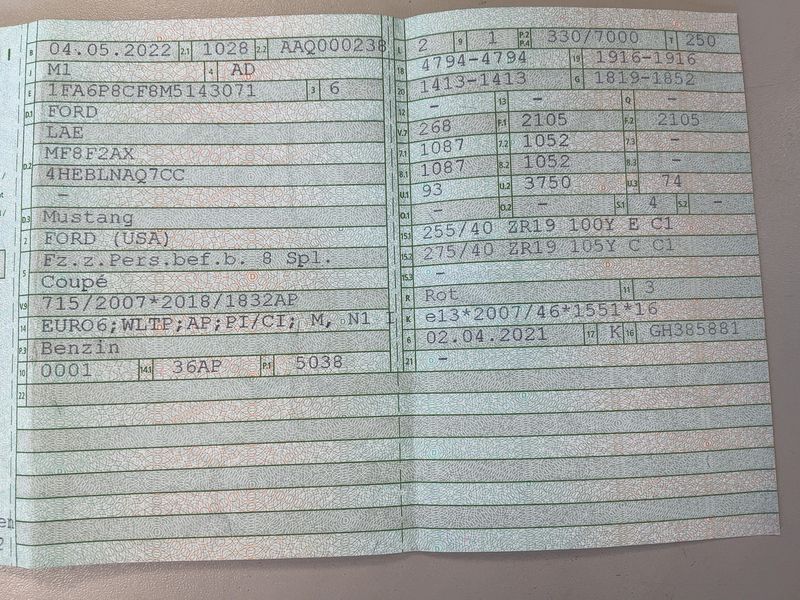 B 04.05.2022 2.1 1028 2.2 AAQ000238
J M1 4 AD
E 1FA6P8CF8M5143071 3 6
D.1 FORD
LAE
D.2 MF8F2AX
4HEBLNAQ7CC
–
D.3 Mustang
2 FORD (USA)
5 Fz.z.Pers.bef.b. 8 Spl.
Coupé
V.9 715/2007*2018/1832AP
14 EURO6;WLTP;AP;PI/CI; M, N1 I
P.3 Benzin
10 0001 14.1 36AP P.1 5038
22
L 2 9 1 P.2 P.4 330/7000 T 250
18 4794-4794 19 1916-1916
20 1413-1413 G 1819-1852
12 – 13 – Q –
V.7 268 F.1 2105 F.2 2105
7.1 1087 7.2 1052 7.3 –
8.1 1087 8.2 1052 8.3 –
U.1 93 U.2 3750 U.3 74
O.1 – O.2 – S.1 4 S.2 –
15.1 255/40 ZR19 100Y E C1
15.2 275/40 ZR19 105Y C C1
15.3 –
R Rot 11 3
K e13*2007/46*1551*16
6 02.04.2021 17 K 16 GH385881
21 –